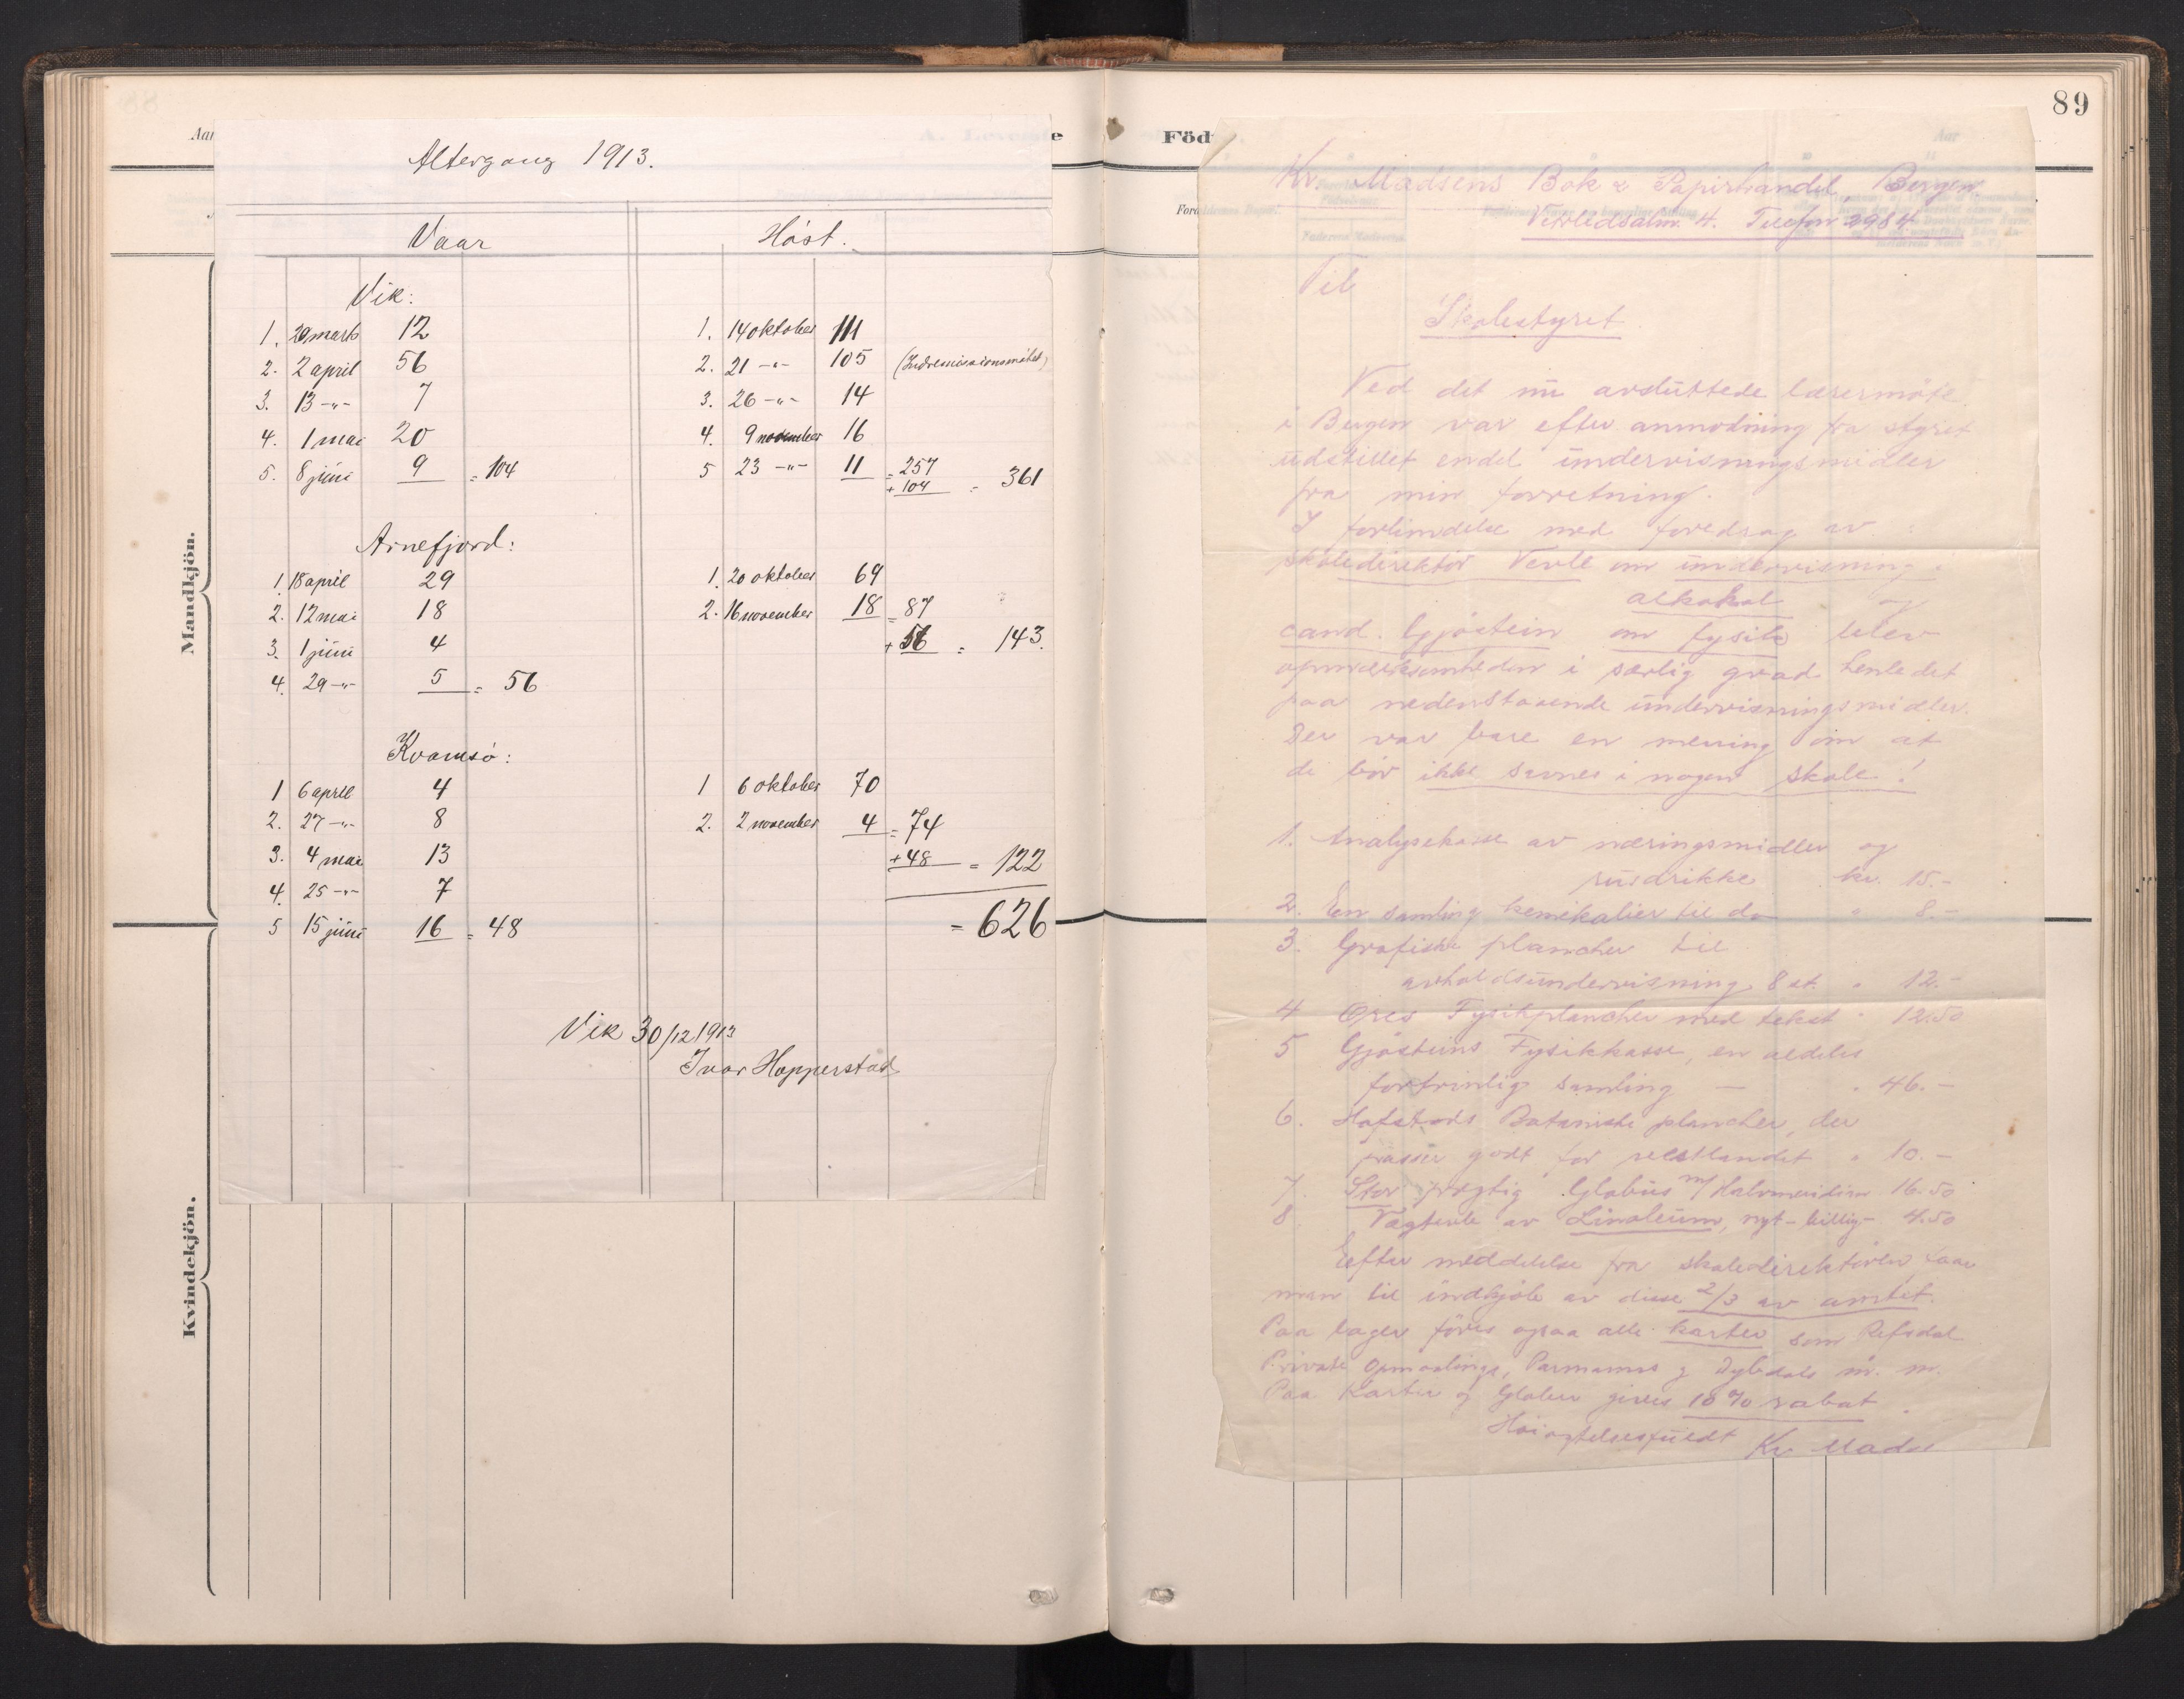 Aar
e
Mandkjön.
Kvindekjön.
Altergang 1913.
Vaar
Vik:
1. 20 marts 12
2. 2 april 56
3. 13 -"- 7
4. 1 mai 20
5. 8 juni 9 = 104
Høst.
1. 14 oktober 111
2. 21 -"- 105 (Indremissionsmøtet)
3. 26 -"- 14
4. 9 november 16
5 23 -"- 11 = 257
+ 104 = 361
Arnefjord:
1. 18 april 29
2. 12 mai 18
3. 1 juni 4
4. 29 -"- 5 = 56
1. 20 oktober 69
2. 16 november 18 = 87
+ 56 = 143.
Kvamsø:
1 6 april 4
2. 27 -"- 8
3. 4 mai 13
4. 25 -"- 7
5 15 juni 16 = 48
1 6 oktober 70
2. 2 november 4 = 74
+ 48 = 122
= 626
Vik 30/12 1913
Ivar Hopperstad
89
Föd
Kr. Madsens Bok & Papirhandel, Bergen.
4. Telefon 2984
Til
Skolestyret
Ved det nu avsluttede lærermøte
i Bergen var efter anmodning fra styret
udstillet endel undervisningsmidler
fra min forretning.
I forbindelse med foredrag av
skoledirektør Verle om undervisning i
alkohol og
cand. Gjøstein om fysik blev
opmerksomheden i særlig grad henledet
paa nedenstaaende undervisningsmidler.
Der var bare en mening om at
de bør ikke savnes i nogen skole!
1. Analysekasse av næringsmidler og
rusdrikke kr. 15.-
2. En samling kemikalier til do " 8.-
3. Grafiske plancher til
avholdsundervisning 8 st. " 12.-
4 Ores Fysikplancher med tekst " 12.50
5 Gjøsteins Fysikkasse, en aldeles
fortrinlig samling — " 46.-
6. Hofstads Botaniske plancher, der
passer godt for vestlandet " 10.-
7. Stor prægtig Globus m/ Halvmeridian 16.50
8 Vægtavle av Linoleum, nyt - billig - 4.50
Efter meddelelse fra skoledirektøren faar
man til indkjøb av disse 2/3 av amtet.
Paa lager føres ogsaa alle karter som Refsdal
Private Opmaalings, og Dybdals m. m.
Paa Karter og Glober gives 10% rabat.
Høiagtelsesfuldt Kr. Mads